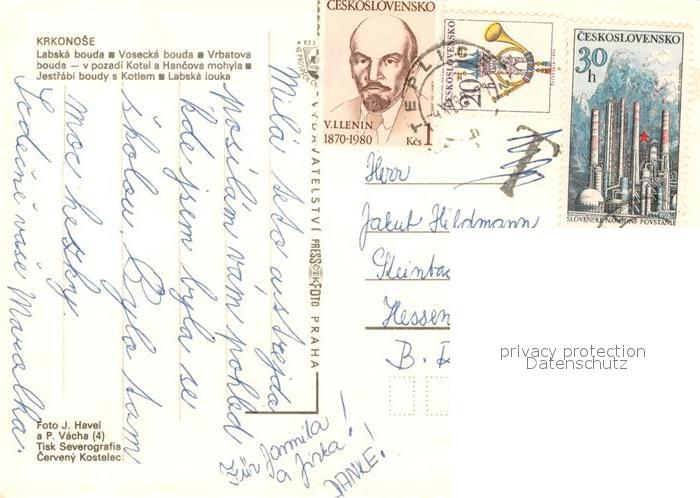 KRKONOŠE
Labská bouda ■ Vosecká bouda ■ Vrbatova
bouda — v pozadí Kotel a Hančova mohyla ■
Jestřábí boudy s Kotlem ■ Labská louka
Milá teto a strejdo
posílám vám pohled
kde jsem byla se
školou. Bylo tam
moc hezky.
Srdečně vaše Maralka.
Jarmila
a
Jirka!
DANKE!
VYDAVATELSTVÍ PRESSFOTO PRAHA
Foto J. Havel
a P. Vácha (4)
Tisk Severografia
Červený Kostelec
ČESKOSLOVENSKO
V.I.LENIN
1870-1980
1 Kčs
ČESKOSLOVENSKO
20
TEPLICE
ČESKOSLOVENSKO
30
h
SLOVENSKÉ NÁRODNÉ POVSTANIE
Herr
Jakob Hildmann
Steinba
Hessen
B.
privacy protection
Datenschutz